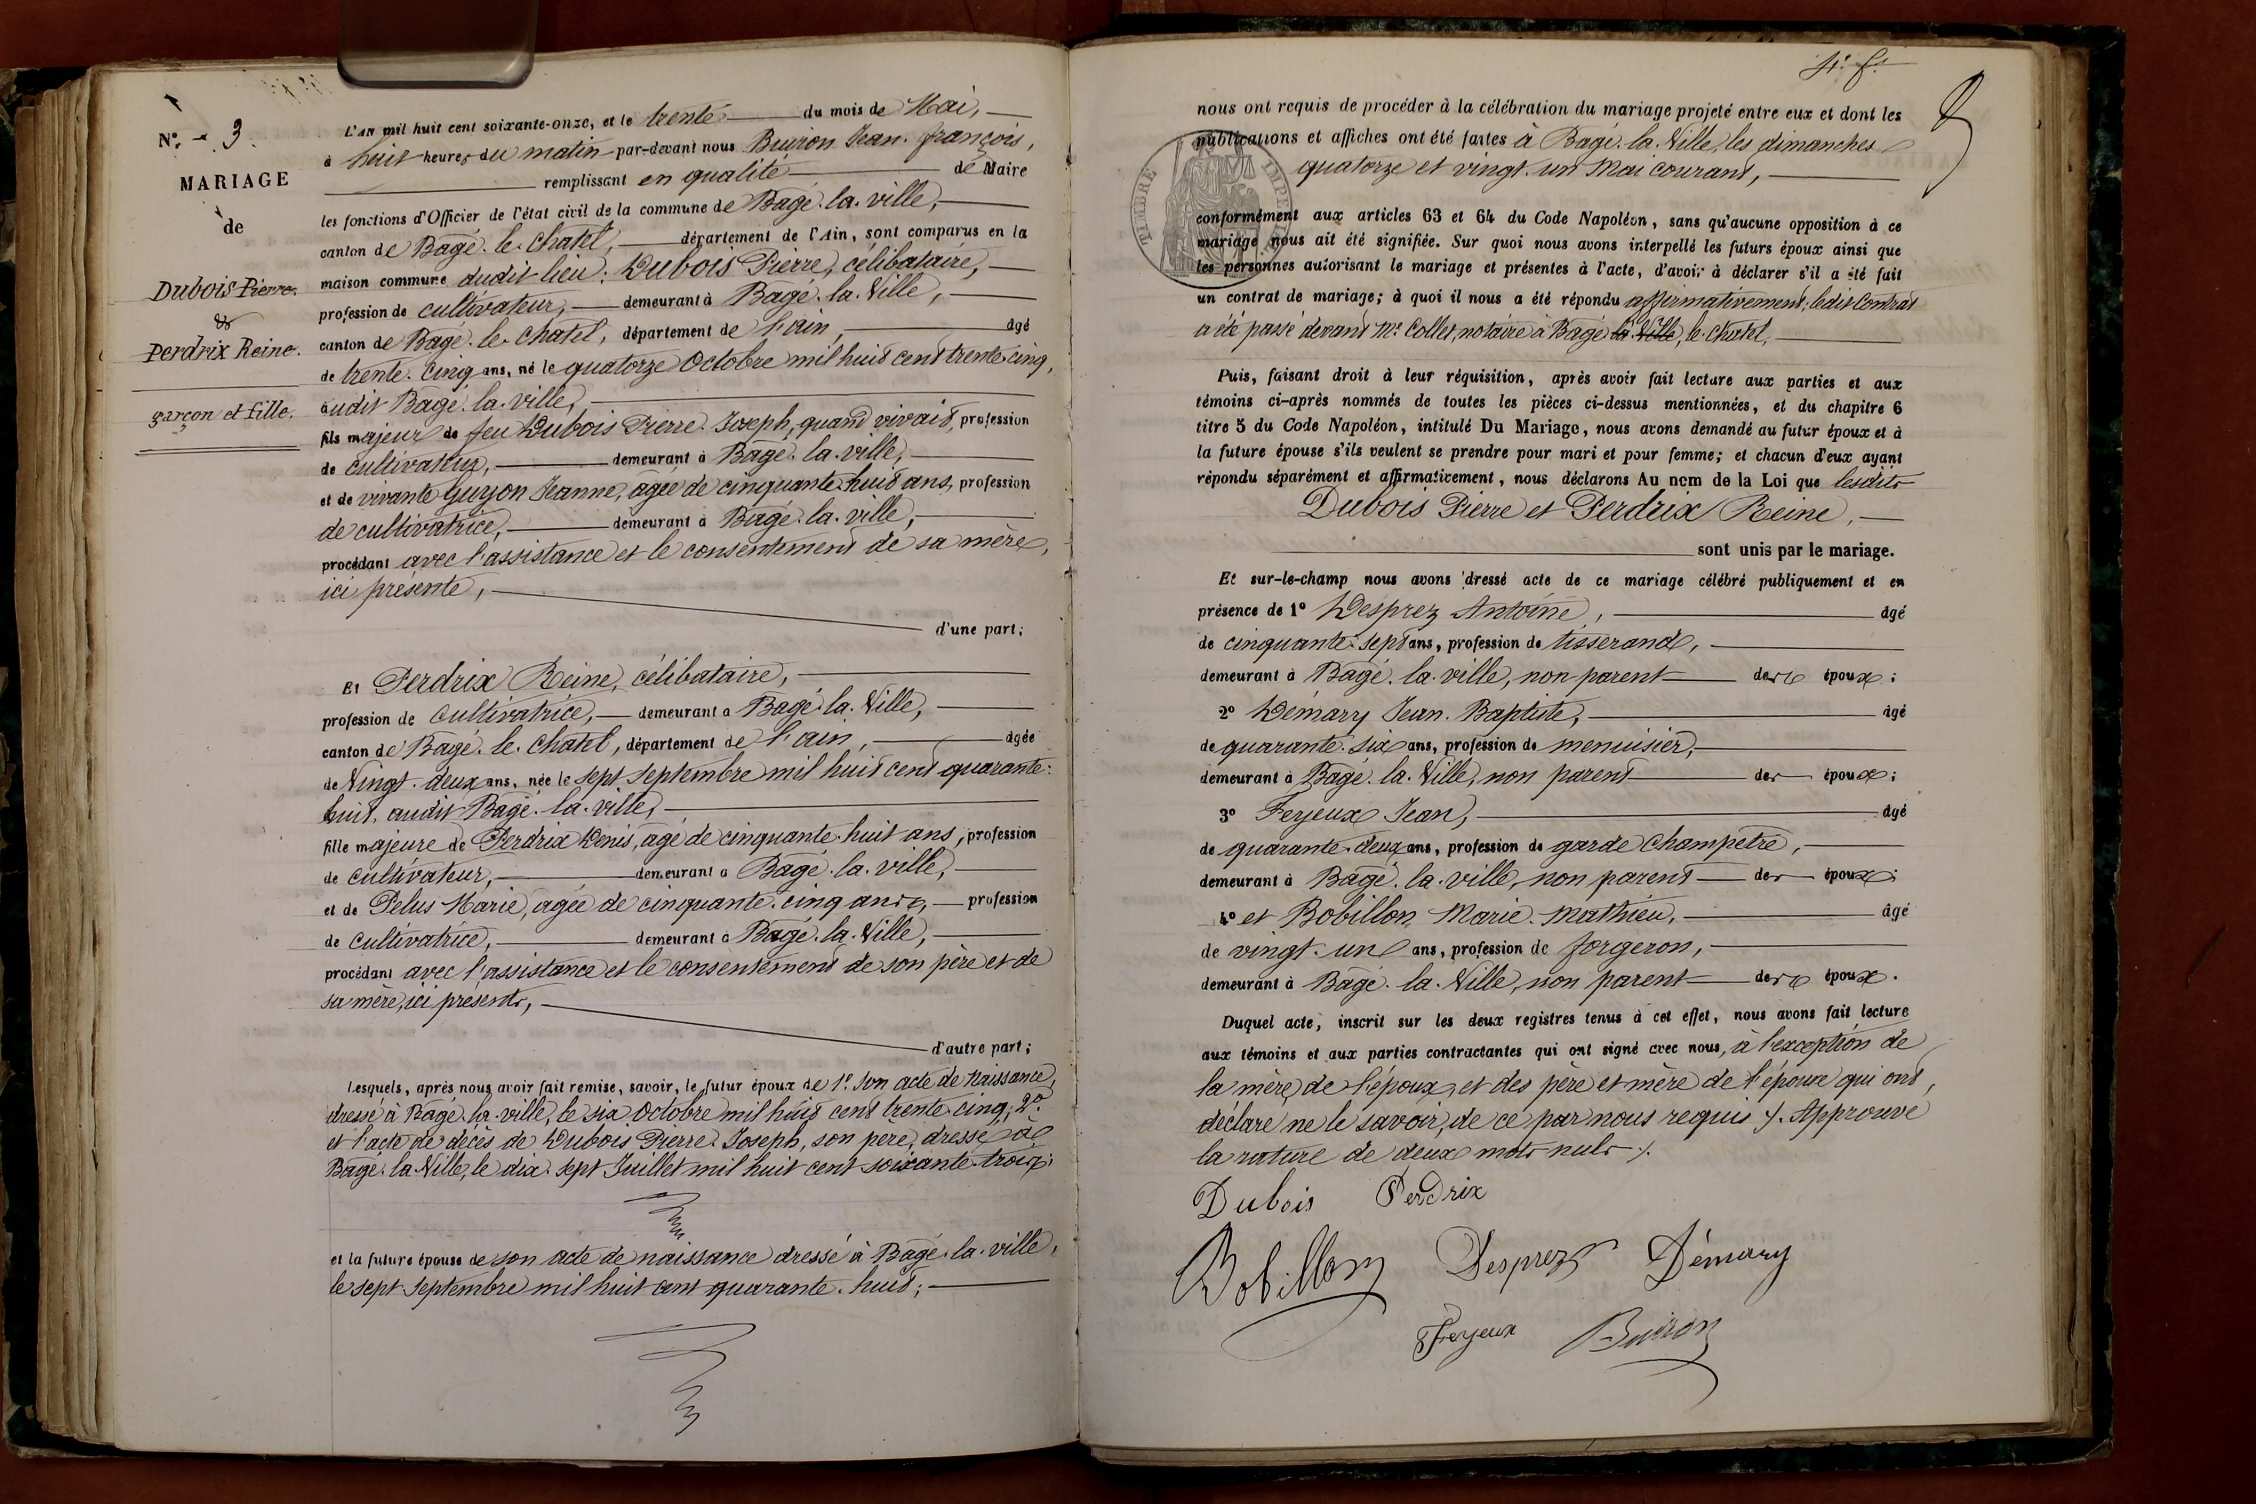 N.º 3.
MARIAGE
de
Dubois Pierre.
&
Perdrix Reine.
garçon et fille.
L'an mil huit cent soixante-onze, et le trente du mois de Mai,
à huit heures du matin par-devant nous Buiron Jean-françois,
remplissant en qualité de Maire
les fonctions d'Officier de l'état civil de la commune de Bagé-la-ville,
canton de Bagé-le-Chatel, département de l'Ain, sont comparus en la
maison commune dudit lieu: Dubois Pierre, célibataire,
profession de cultivateur, demeurant à Bagé-la-Ville,
canton de Bagé-le-Chatel, département de l'ain, âgé
de trente-cinq ans, né le quatorze Octobre mil huit cent trente-cinq,
audit Bagé-la-ville,
fils majeur de feu Dubois Pierre-Joseph, quand vivait, profession
de cultivateur, demeurant à Bagé-la-ville,
et de vivante Guyon Jeanne, agée de cinquante-huit ans, profession
de cultivatrice, demeurant à Bagé-la-ville,
procédant avec l'assistance et le consentement de sa mère,
ici présente,
d'une part;
Et Perdrix Reine, célibataire,
profession de cultivatrice, demeurant à Bagé-la-Ville,
canton de Bagé-le-Chatel, département de l'ain, âgée
de Vingt-deux ans, née le sept Septembre mil huit cent quarante-
huit, audit Bagé-la-ville,
fille majeure de Perdrix Denis, agé de cinquante-huit ans, profession
de cultivateur, demeurant à Bagé-la-ville,
et de Pelus Marie, agée de cinquante-cinq ans, profession
de cultivatrice, demeurant à Bagé-la-Ville,
procédant avec l'assistance et le consentement de son père et de
sa mère, ici présents,
d'autre part;
Lesquels, après nous avoir fait remise, savoir, le futur époux de 1º son acte de Naissance,
dressé à Bagé-la-ville, le six Octobre mil huit cent trente-cinq; 2º
et l'acte de décès de Dubois Pierre-Joseph, son père, dressé à
Bagé-la-Ville, le dix-sept Juillet mil huit cent soixante-trois;
et la future épouse de son acte de naissance dressé à Bagé-la-ville,
le sept Septembre mil huit cent quarante-huit;
4º f.
nous ont requis de procéder à la célébration du mariage projeté entre eux et dont les
publications et affiches ont été faites à Bagé-la-Ville, les dimanches
quatorze et vingt-un Mai courant,
TIMBRE IMPÉRIAL
conformément aux articles 63 et 64 du Code Napoléon, sans qu'aucune opposition à ce
mariage nous ait été signifiée. Sur quoi nous avons interpellé les futurs époux ainsi que
les personnes autorisant le mariage et présentes à l'acte, d'avoir à déclarer s'il a été fait
un contrat de mariage; à quoi il nous a été répondu affirmativement; ledit Contrat
a été passé devant Mº Collet, notaire à Bagé la Ville, le-chatel,
Puis, faisant droit à leur réquisition, après avoir fait lecture aux parties et aux
témoins ci-après nommés de toutes les pièces ci-dessus mentionnées, et du chapitre 6
titre 5 du Code Napoléon, intitulé Du Mariage, nous avons demandé au futur époux et à
la future épouse s'ils veulent se prendre pour mari et pour femme; et chacun d'eux ayant
répondu séparément et affirmativement, nous déclarons Au nom de la Loi que lesdits
Dubois Pierre et Perdrix Reine,
sont unis par le mariage.
Et sur-le-champ nous avons dressé acte de ce mariage célébré publiquement et en
présence de 1º Desprez Antoine, âgé
de cinquante-sept ans, profession de tisserand,
demeurant à Bagé-la-ville, non-parent des époux;
2º Démary Jean-Baptiste, âgé
de quarante-six ans, profession de menuisier,
demeurant à Bagé-la-Ville, non parent des époux;
3º Feyeux Jean, âgé
de quarante-deux ans, profession de garde champêtre,
demeurant à Bagé-la-ville, non parent des époux;
4º et Bobillon Marie-Mathieu, âgé
de vingt-un ans, profession de forgeron,
demeurant à Bagé-la-Ville, non parent des époux.
Duquel acte, inscrit sur les deux registres tenus à cet effet, nous avons fait lecture
aux témoins et aux parties contractantes qui ont signé avec nous, à l'exception de
la mère de l'époux, et des père et mère de l'épouse qui ont,
déclaré ne le savoir, de ce par nous requis ./. Approuvé
la rature de deux mots nuls ./.
Dubois Perdrix
Bobillon Desprez Démary
Feyeux Buiron